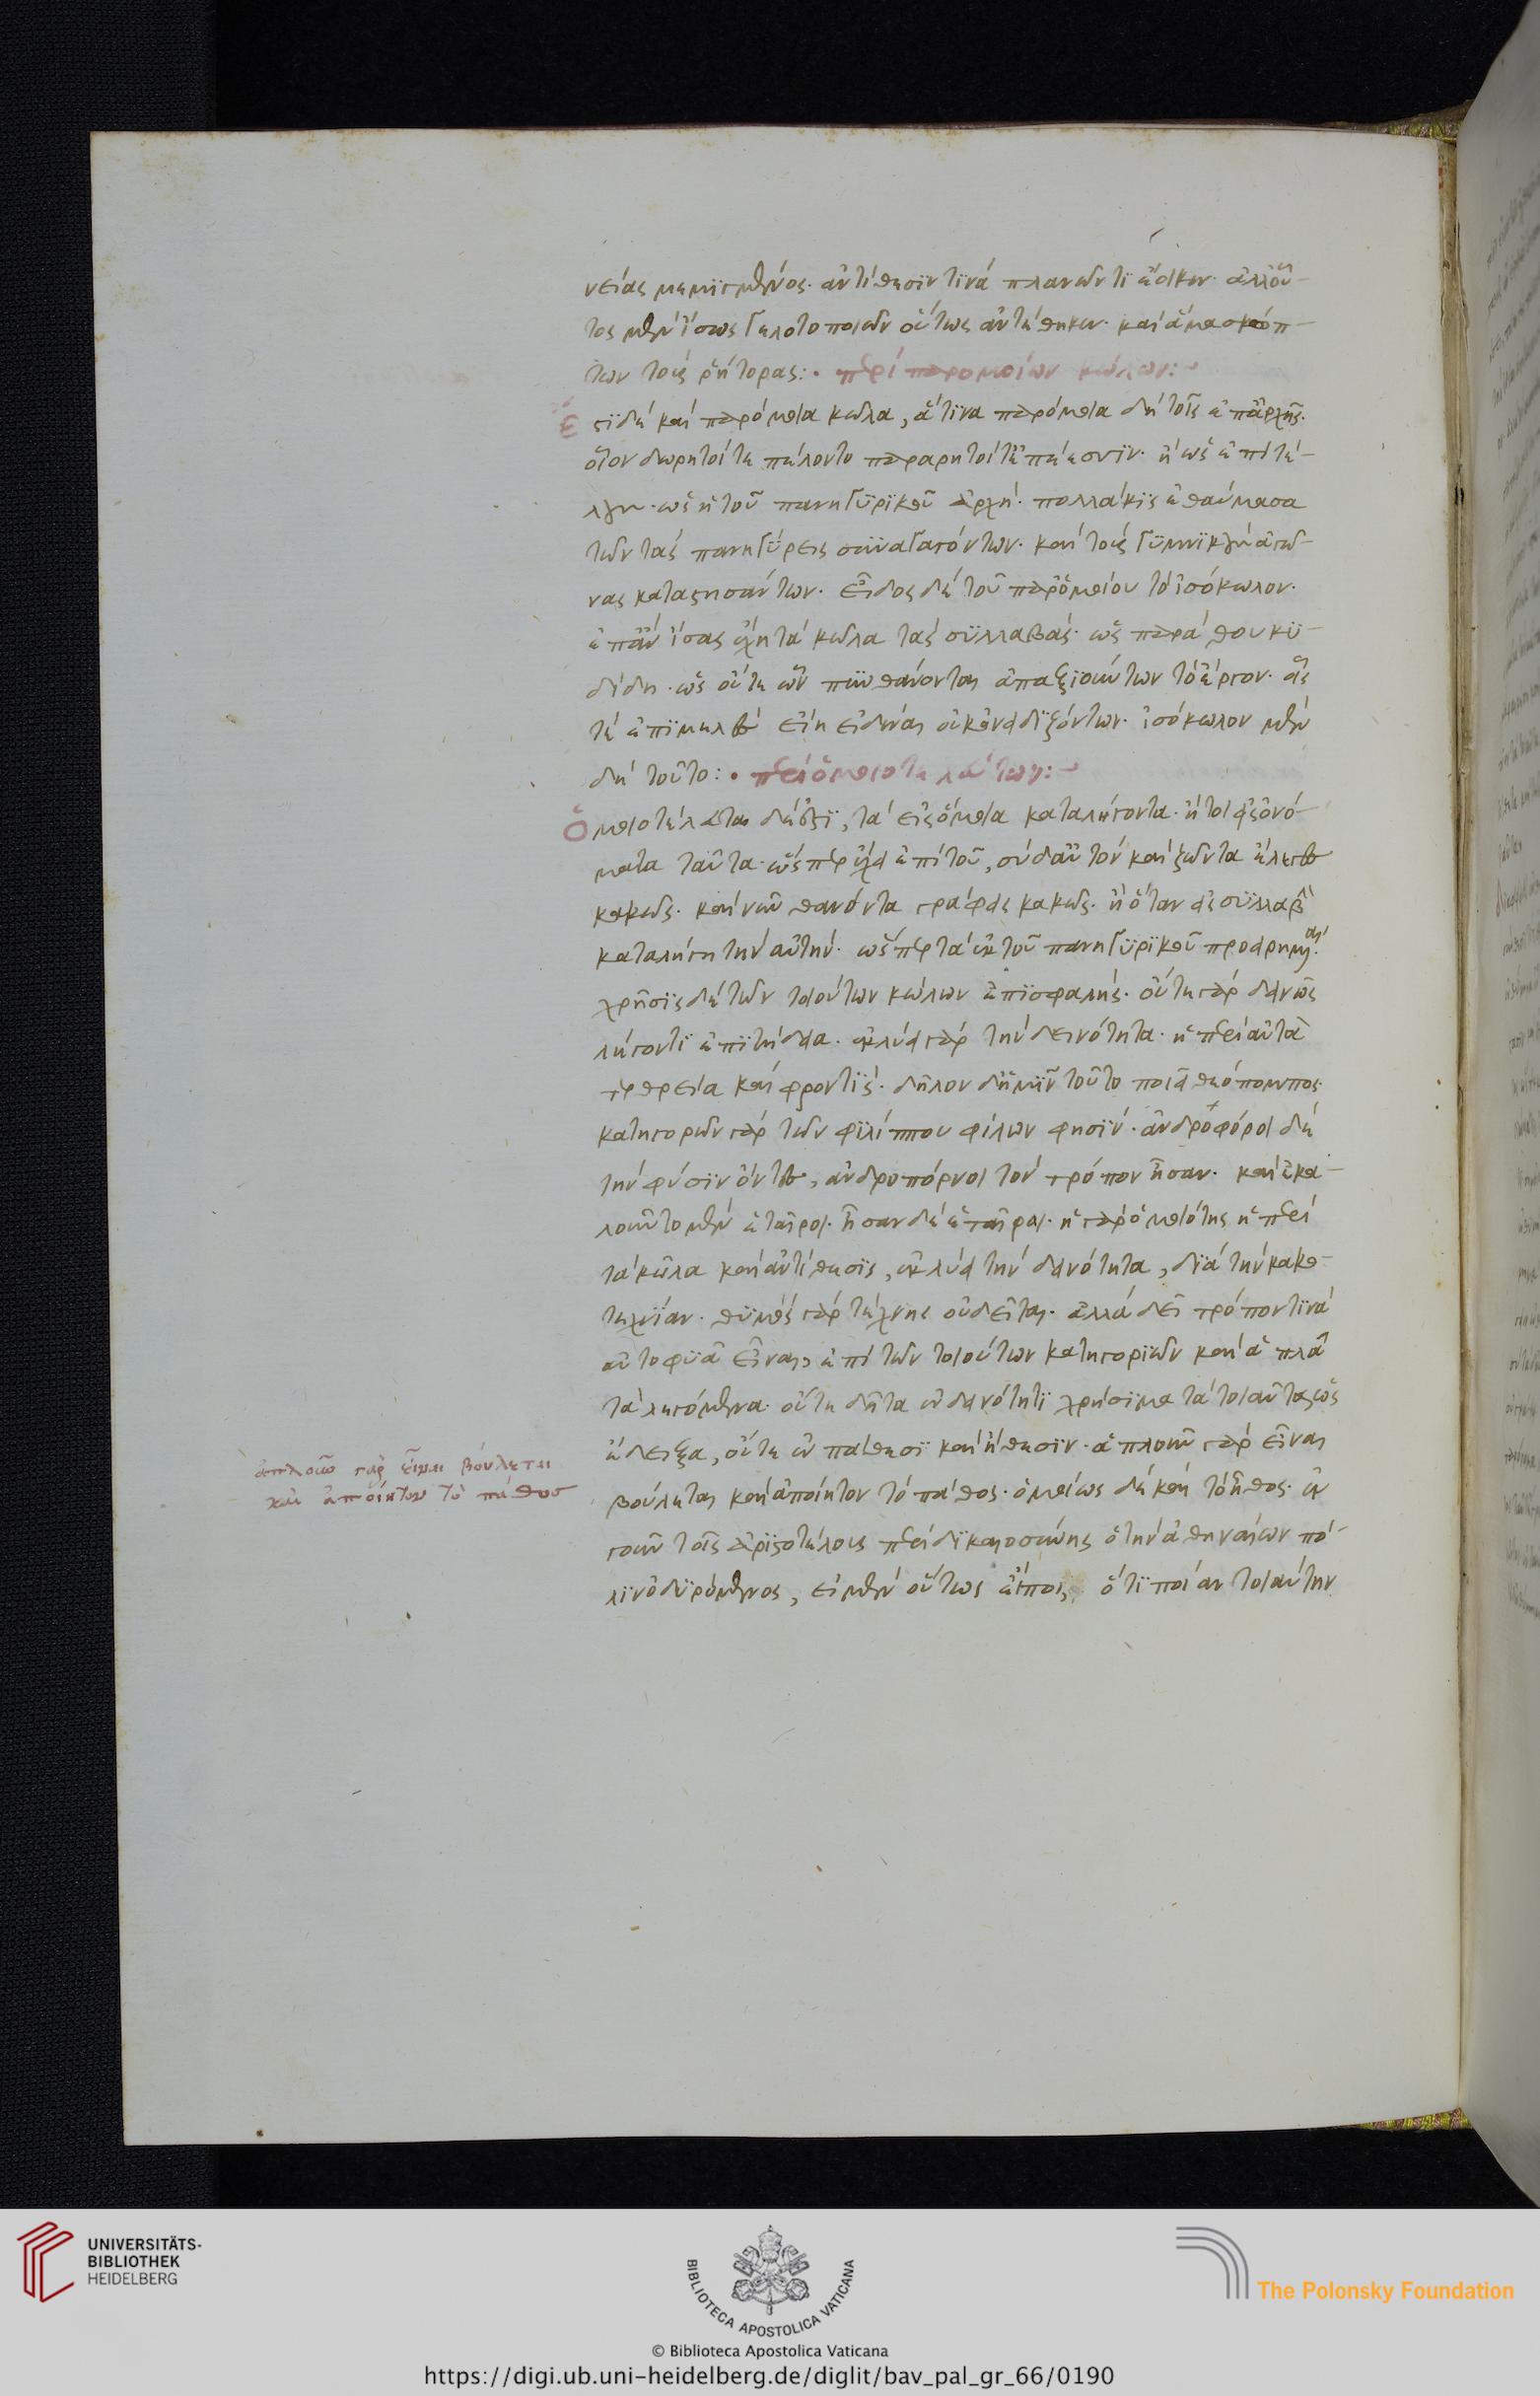 νείας μεμιγμένος. ἀντίθεσιν τινὰ πλανῶντι ἔοικεν. ἀλλ' οὗ-
τος μὲν ἴσως γελοτοποιῶν οὕτως ἀντέθηκεν. καὶ ἅμα σκώπ-
των τοὺς ῥήτορας: περὶ παρομοίων κώλων:
Ἔστι δὲ καὶ παρόμοια κῶλα, ἅτινα παρόμοια δὴ τοῖς ἐπ' ἀρχῆς.
οἷον δωρητοί τε πέλοντο παραρητοί τ' ἐπέεσσιν. ἢ ὡς ἐπὶ τέ-
λους. ὡς ἡ τοῦ πανηγυρικοῦ ἀρχή. πολλάκις ἐθαύμασα
τῶν τὰς πανηγύρεις συναγαγόντων. καὶ τοὺς γυμνικοὺς ἀγῶ-
νας καταστησάντων. εἶδος δὲ τοῦ παρομοίου τὸ ἰσόκωλον.
ἐπὰν ἴσας ἔχῃ τὰ κῶλα τὰς συλλαβάς. ὡς παρὰ θουκυ-
δίδῃ. ὡς οὔτε ὧν πυνθάνονται ἀπαξιούντων τὸ ἔργον. οἷς
τε ἐπιμελὲς εἴη εἰδέναι οὐκ ὀνειδιζόντων. ἰσόκωλον μὲν
δὴ τοῦτο: περὶ ὁμοιοτελεύτων:
Ὁμοιοτέλευτα δέ ἐστι, τὰ εἰς ὅμοια καταλήγοντα. ἤτοι εἰς ὀνό-
ματα ταῦτα. ὥσπερ ἔχει ἐπὶ τοῦ, σὺ δ' αὐτὸν καὶ ζῶντα ἔλεγες
κακῶς. καὶ νῦν θανόντα γράφεις κακῶς. ἢ ὅταν εἰς συλλαβὴν
καταλήγῃ τὴν αὐτήν. ὥσπερ τὰ ἐκ τοῦ πανηγυρικοῦ προειρημένα.
χρῆσις δὲ τῶν τοιούτων κώλων ἐπισφαλής. οὔτε γὰρ δεινῶς
λέγοντι ἐπιτήδεια. ἐκλύει γὰρ τὴν δεινότητα. ἡ περὶ αὐτὰ
τερθρεία καὶ φροντίς. δῆλον δ' ἡμῖν τοῦτο ποιεῖ θεόπομπος.
κατηγορῶν γὰρ τῶν φιλίππου φίλων φησίν. ἀνδροφόροι δὲ
τὴν φύσιν ὄντες, ἀνδροπόρνοι τὸν τρόπον ἦσαν. καὶ ἐκα-
λοῦντο μὲν ἑταῖροι. ἦσαν δὲ ἑταῖραι. ἡ γὰρ ὁμοιότης ἡ περὶ
τὰ κῶλα καὶ ἀντίθεσις, ἐκλύει τὴν δεινότητα, διὰ τὴν κακο-
τεχνίαν. θυμὸς γὰρ τέχνης οὐ δεῖται. ἀλλὰ δεῖ τρόπον τινὰ
αὐτοφυᾶ εἶναι ἐπὶ τῶν τοιούτων κατηγοριῶν καὶ ἁπλᾶ
τὰ λεγόμενα. οὔτε δῆτα ἐν δεινότητι χρήσιμα τὰ τοιαῦτα, ὡς
ἔδειξα, οὔτε ἐν πάθεσι καὶ ἤθεσιν. ἁπλοῦν γὰρ εἶναι
βούλεται καὶ ἀποίητον τὸ πάθος. ὁμοίως δὲ καὶ τὸ ἦθος. ἐν
γοῦν τοῖς ἀριστοτέλους περὶ δικαιοσύνης ὁ τὴν ἀθηναίων πό-
λιν ὀδυρόμενος, εἰ μὲν οὕτως εἴποι, ὅτι ποίαν τοιαύτην
ἁπλοῦν γὰρ εἶναι βούλεται
καὶ ἀποίητον τὸ πάθος
UNIVERSITÄTS-
BIBLIOTHEK
HEIDELBERG
BIBLIOTECA APOSTOLICA VATICANA
The Polonsky Foundation
© Biblioteca Apostolica Vaticana
https://digi.ub.uni-heidelberg.de/diglit/bav_pal_gr_66/0190